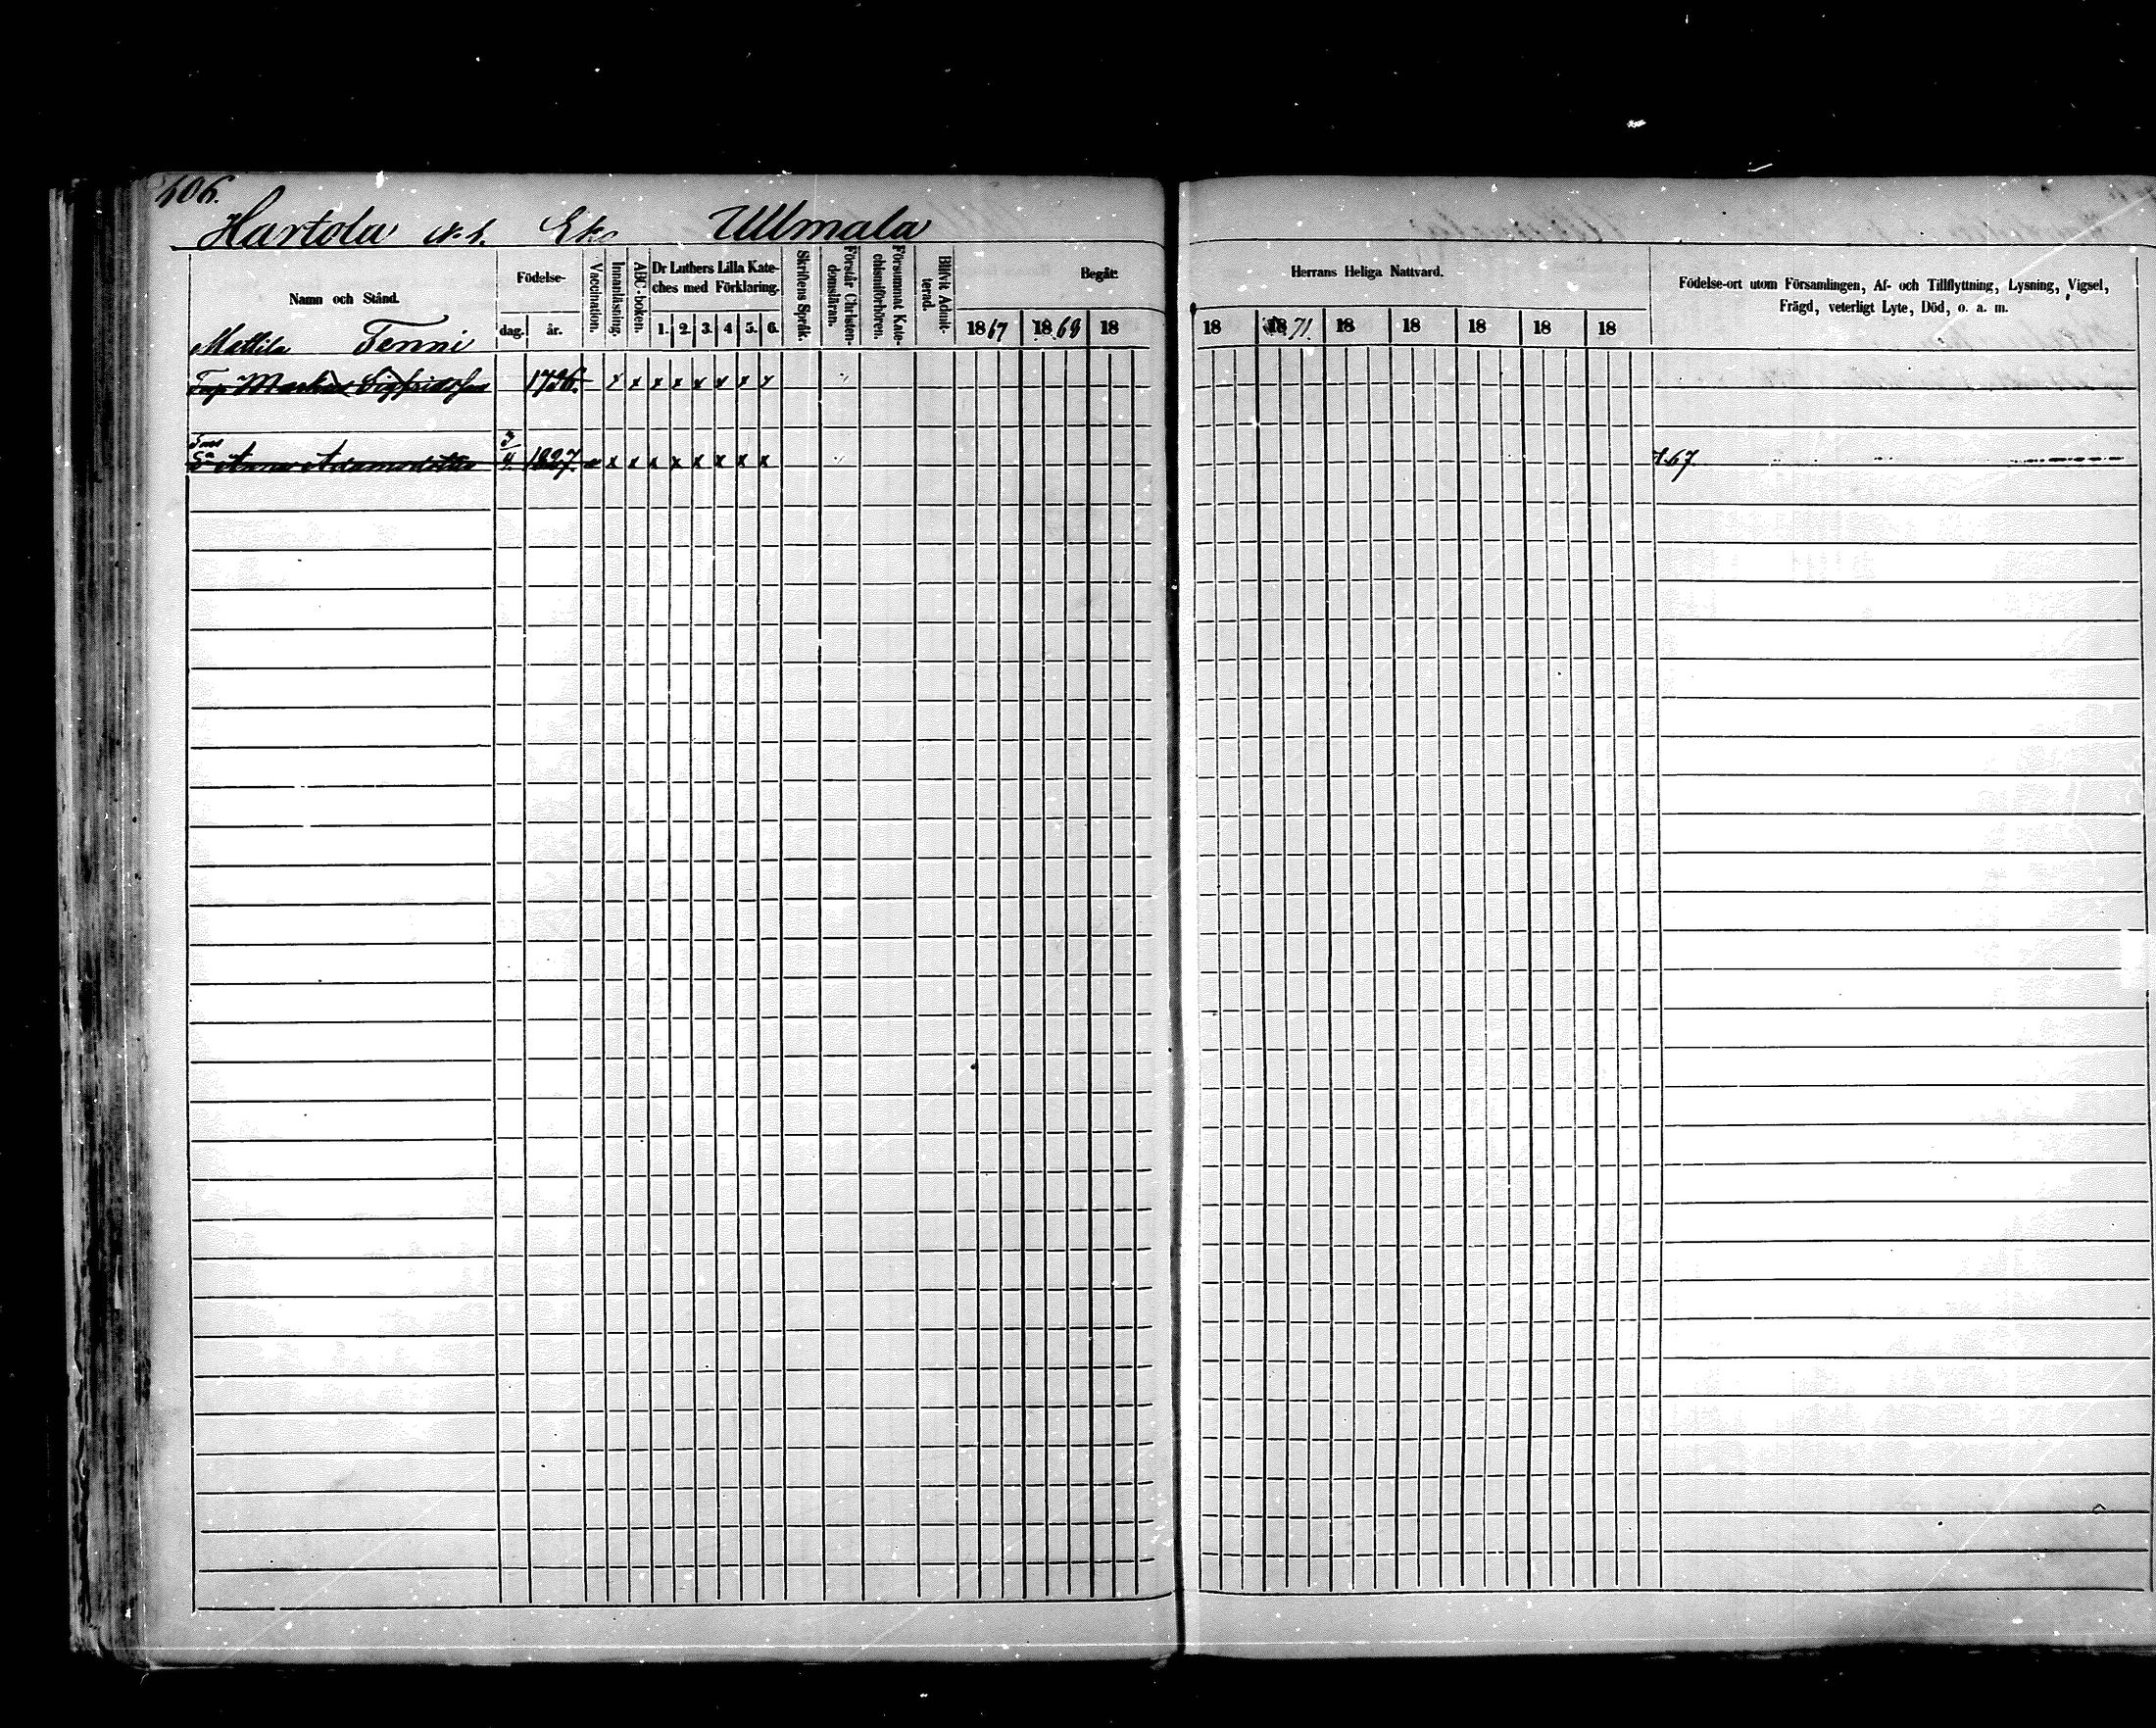 406.
Hartola Ullmala
Namn och Stånd. Födelse- dag. år. Vaccination. Innanläsning. ABC-boken. Dr Luthers Lilla Kateches med Förklaring. 1. 2. 3. 4 5. 6. Skriftens Språk. Förstår Christendomsläran. Försummat Katechismiförhören. Blifvit Admitterad. Begåt: 1867 1868 18
Herrans Heliga Nattvard. 18 1871. 18 18 18 18 18
Födelse-ort utom Församlingen, Af- och Tillflyttning, Lysning, Vigsel, Frägd, veterligt Lyte, Död, o. a. m.
Mattila Tenni
Markus Sigfridsson x x x x x x x x
Anna Adamsdotter 3/4. 1827. x x x x x x x x 67.